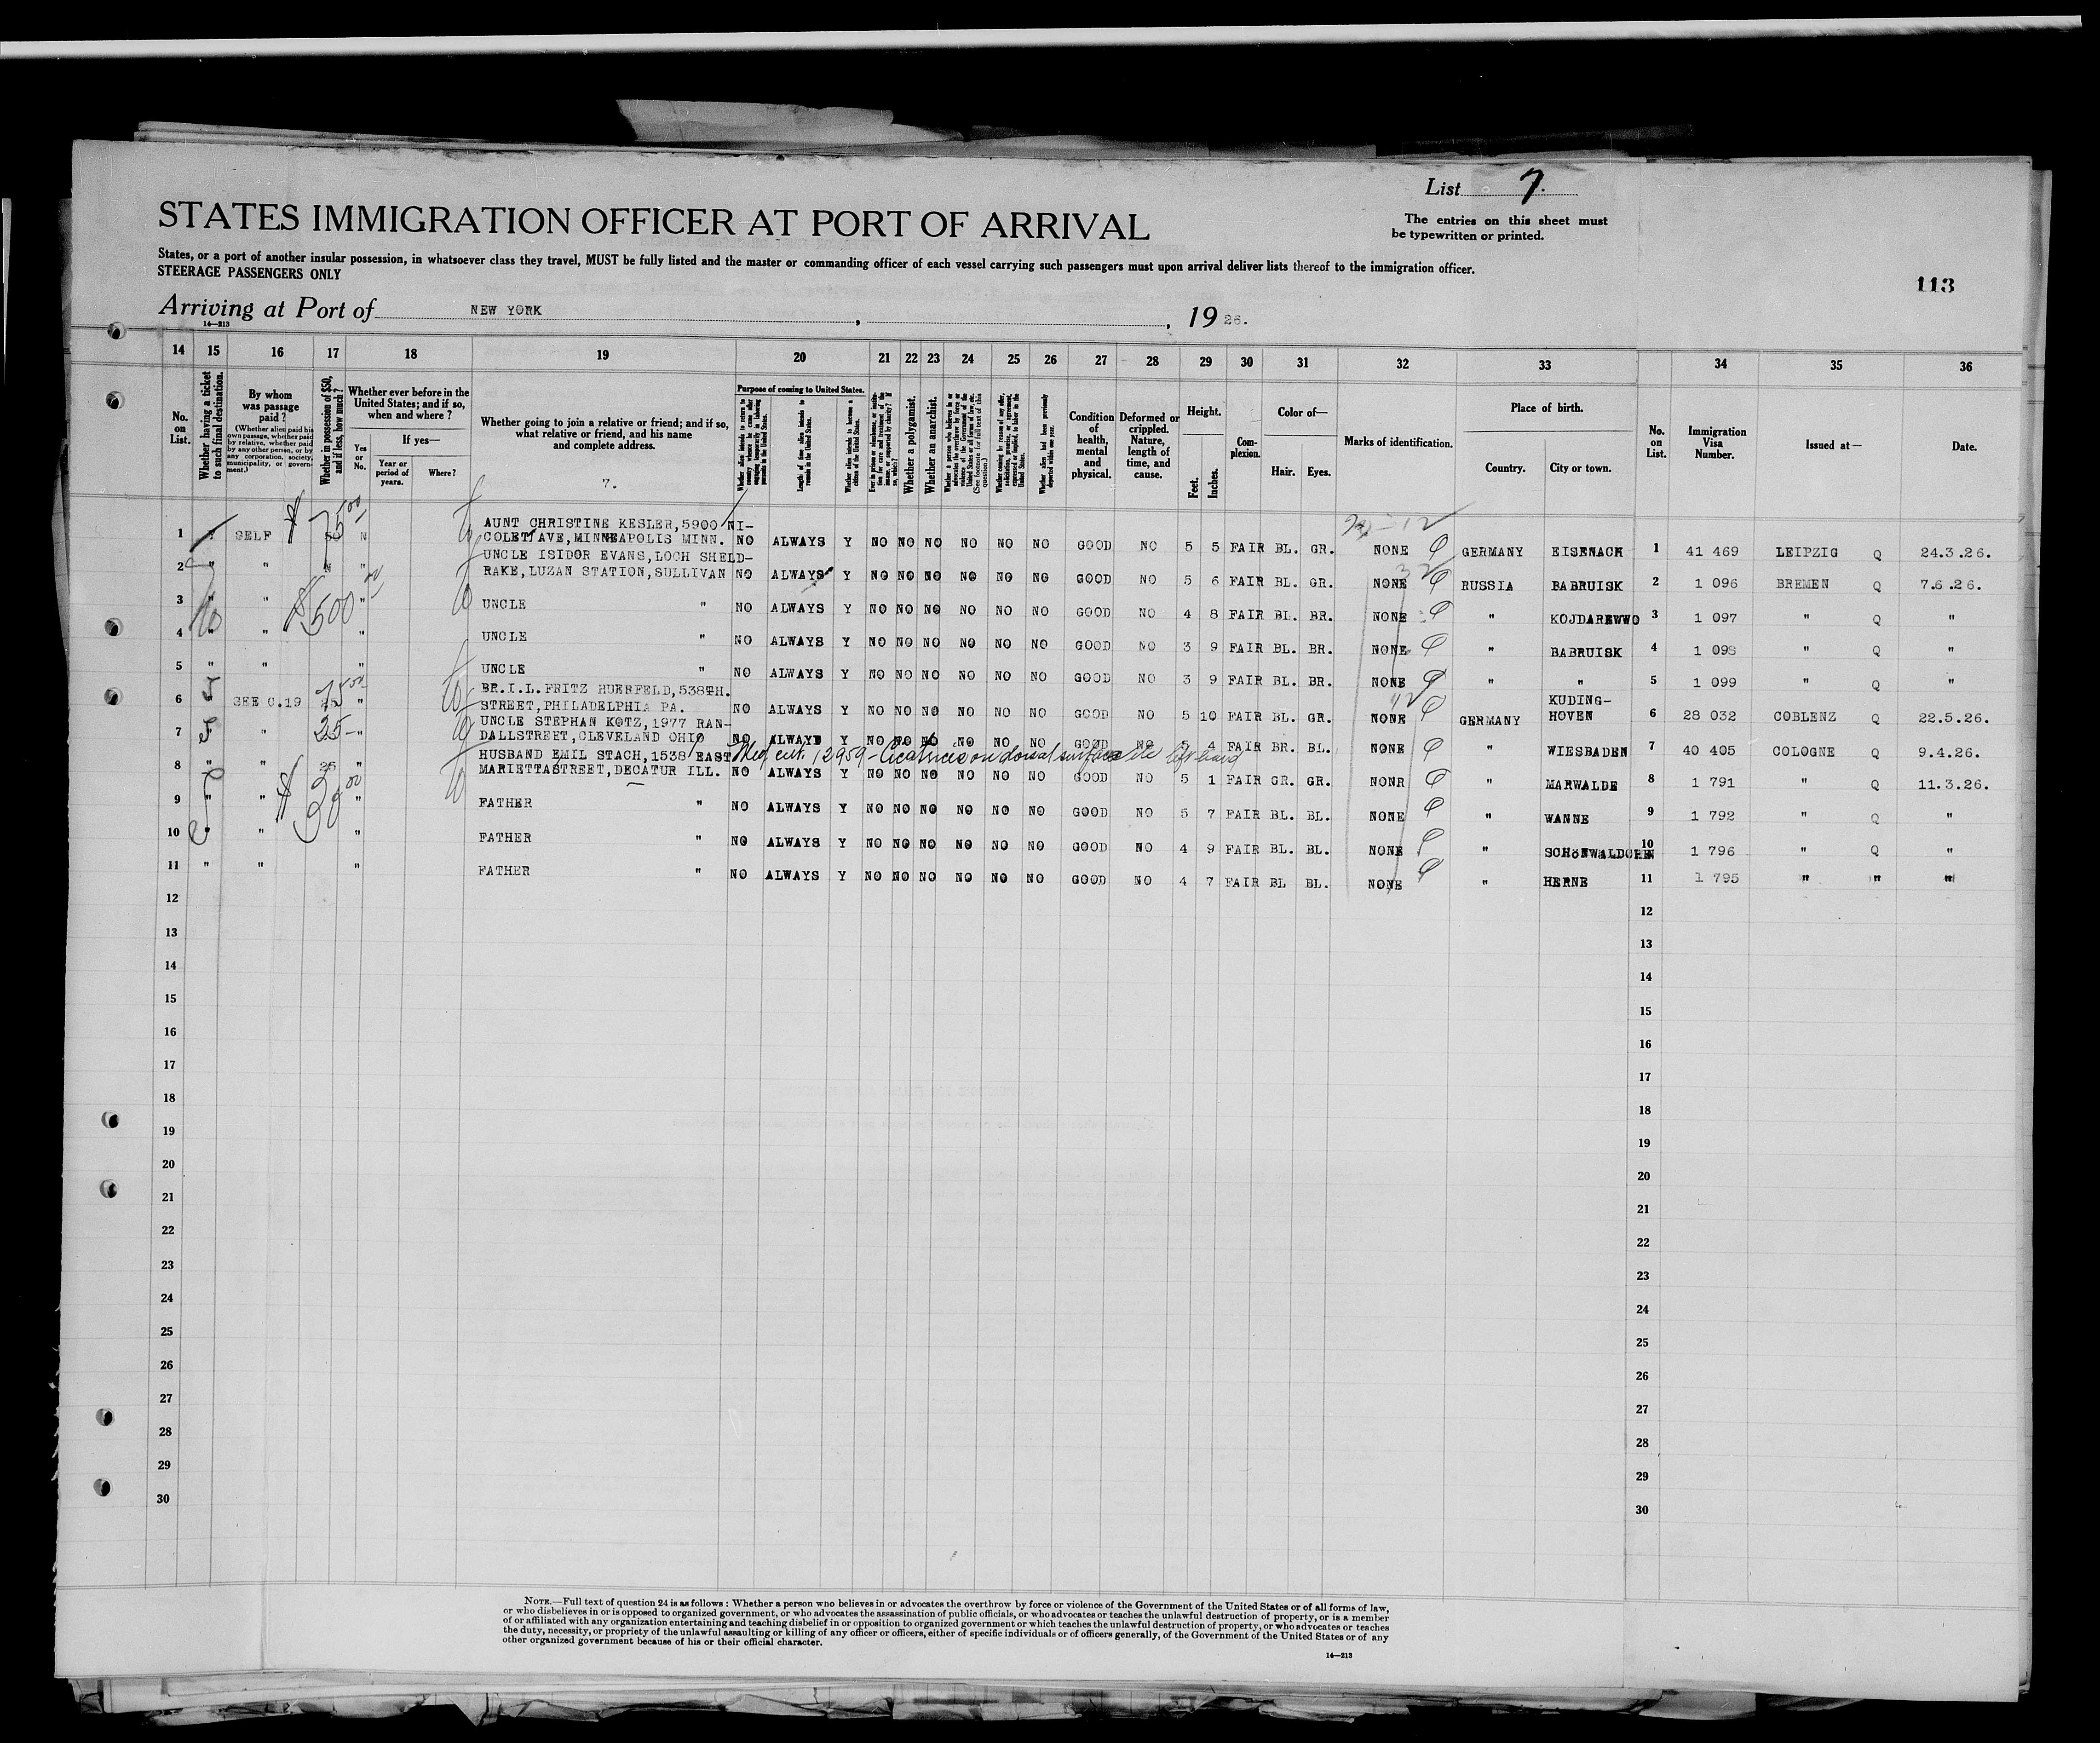 List 7.
The entries on this sheet must
be typewritten or printed.
STATES IMMIGRATION OFFICER AT PORT OF ARRIVAL
States, or a port of another insular possession, in whatsoever class they travel, MUST be fully listed and the master or commanding officer of each vessel carrying such passengers must upon arrival deliver lists thereof to the immigration officer.
STEERAGE PASSENGERS ONLY
113
Arriving at Port of NEW YORK , , 19 26.
14—213
14 15 16 17 18 19 20 21 22 23 24 25 26 27 28 29 30 31 32 33 34 35 36
No. on List.
Whether having a ticket to such final destination.
By whom was passage paid?
(Whether alien paid his own passage, whether paid by relative, whether paid by any other person, or by any corporation, society, municipality, or government.)
Whether in possession of $50, and if less, how much?
Whether ever before in the United States; and if so, when and where?
Yes or No.
If yes—
Year or period of years.
Where?
Whether going to join a relative or friend; and if so, what relative or friend, and his name and complete address.
7.
Purpose of coming to United States.
Length of time alien intends to remain in the United States.
Whether alien intends to become a citizen of the United States.
Whether a polygamist.
Whether an anarchist.
Condition of health, mental and physical.
Deformed or crippled. Nature, length of time, and cause.
Height.
Feet. Inches.
Complexion.
Color of—
Hair. Eyes.
Marks of identification.
Place of birth.
Country. City or town.
No. on List.
Immigration Visa Number.
Issued at—
Date.
AUNT CHRISTINE KESLER, 5900 NI-
1 SELF $ 75 00 50 N COLETT AVE, MINNEAPOLIS MINN. NO ALWAYS Y NO NO NO NO NO NO GOOD NO 5 5 FAIR BL. GR. NONE GERMANY EISENACH 1 41 469 LEIPZIG Q 24.3.26.
UNCLE ISIDOR EVANS, LOCH SHELD-
2 " " " RAKE, LUZAN STATION, SULLIVAN NO ALWAYS Y NO NO NO NO NO NO GOOD NO 5 6 FAIR BL. GR. NONE RUSSIA BABRUISK 2 1 096 BREMEN Q 7.6.26.
3 " " $500 00 " UNCLE " NO ALWAYS Y NO NO NO NO NO NO GOOD NO 4 8 FAIR BL. BR. NONE " KOJDAREWWO 3 1 097 " Q "
4 " " " UNCLE " NO ALWAYS Y NO NO NO NO NO NO GOOD NO 3 9 FAIR BL. BR. NONE " BABRUISK 4 1 098 " Q "
5 " " " UNCLE " NO ALWAYS Y NO NO NO NO NO NO GOOD NO 3 9 FAIR BL. BR. NONE " " 5 1 099 " Q "
BR.I.L. FRITZ HUERFELD, 538TH. KUDING-
6 SEE C.19 75 00 " STREET, PHILADELPHIA PA. NO ALWAYS Y NO NO NO NO NO NO GOOD NO 5 10 FAIR BL. GR. NONE GERMANY HOVEN 6 28 032 COBLENZ Q 22.5.26.
UNCLE STEPHAN KOTZ, 1977 RAN-
7 " 25- " DALLSTREET, CLEVELAND OHIO NO ALWAYD Y NO NO NO NO NO NO GOOD NO 5 4 FAIR BR. BL. NONE " WIESBADEN 7 40 405 COLOGNE Q 9.4.26.
HUSBAND EMIL STACH, 1538 EAST Med cert. 12959 - Cicatrices on dorsal surface left hand
8 " " 25 " MARIETTASTREET, DECATUR ILL. NO ALWAYS Y NO NO NO NO NO NO GOOD NO 5 1 FAIR GR. GR. NONR " MARWALDE 8 1 791 " Q 11.3.26.
9 " " $ " FATHER " NO ALWAYS Y NO NO NO NO NO NO GOOD NO 5 7 FAIR BL. BL. NONE " WANNE 9 1 792 " Q "
10 " " " FATHER " NO ALWAYS Y NO NO NO NO NO NO GOOD NO 4 9 FAIR BL. BL. NONE " 10 1 796 " Q "
11 " " " FATHER " NO ALWAYS Y NO NO NO NO NO NO GOOD NO 4 7 FAIR BL BL. NONE " HERNE 11 1 795 " " "
12 12
13 13
14 14
15 15
16 16
17 17
18 18
19 19
20 20
21 21
22 22
23 23
24 24
25 25
26 26
27 27
28 28
29 29
30 30
NOTE.—Full text of question 24 is as follows: Whether a person who believes in or advocates the overthrow by force or violence of the Government of the United States or of all forms of law,
or who disbelieves in or is opposed to organized government, or who advocates the assassination of public officials, or who advocates or teaches the unlawful destruction of property, or is a member
of or affiliated with any organization entertaining and teaching disbelief in or opposition to organized government or which teaches the unlawful destruction of property, or who advocates or teaches
the duty, necessity, or propriety of the unlawful assaulting or killing of any officer or officers, either of specific individuals or of officers generally, of the Government of the United States or of any
other organized government because of his or their official character.
14—213